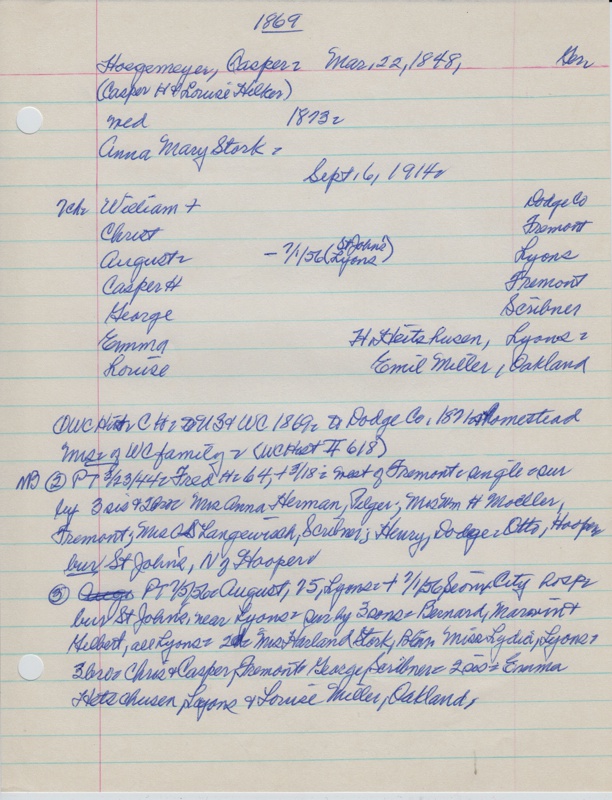 1869
Hoegemeyer, Casper = Mar, 22, 1848, Ger
(Casper H & Louise Hilker)
med 1873 =
Anna Mary Stork =
Sept, 6, 1914 =
7ch = William + Dodge Co
Christ Fremont
August = - 7/1/56 (St John's Lyons) Lyons
Casper H Fremont
George Scribner
Emma H Heitshusen, Lyons =
Louise Emil Miller, Oakland
Dodge Co, 1871 = Homestead
of WC family = (WC Hist II 618)
NB ② PT 3/23/44 = Fred H = 64, + 3/18 = west of Fremont = single = sur
by 3 sis & 2 bro = Mrs Anna Herman, Pilger; Mrs Wm H Moeller,
Fremont; Mrs Langewisch, Scribner; Henry, Dodge = Otto, Hooper
bur St John's, N of Hooper
⑤ PT 7/5/56 = August, 75, Lyons = + 7/1/56 Sioux City hosp =
bur St Johns, near Lyons = sur by 3 sons = Bernard, Marvin &
Hilbert, all Lyons = 2 Mrs Harland Stork, Blair, Miss Lydia, Lyons =
3 bro = Chris & Casper, Fremont & George, Scribner = 2 sis = Emma
Hetschusen, Lyons & Louise Miller, Oakland,